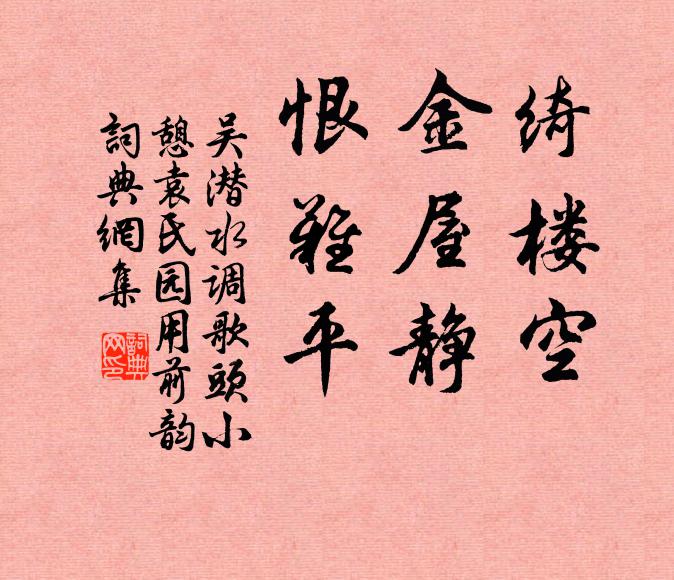 绮楼空
金屋静
恨难平
吴潜水调歌头小
憩袁氏园用前韵
詞典網集
詞典
网印